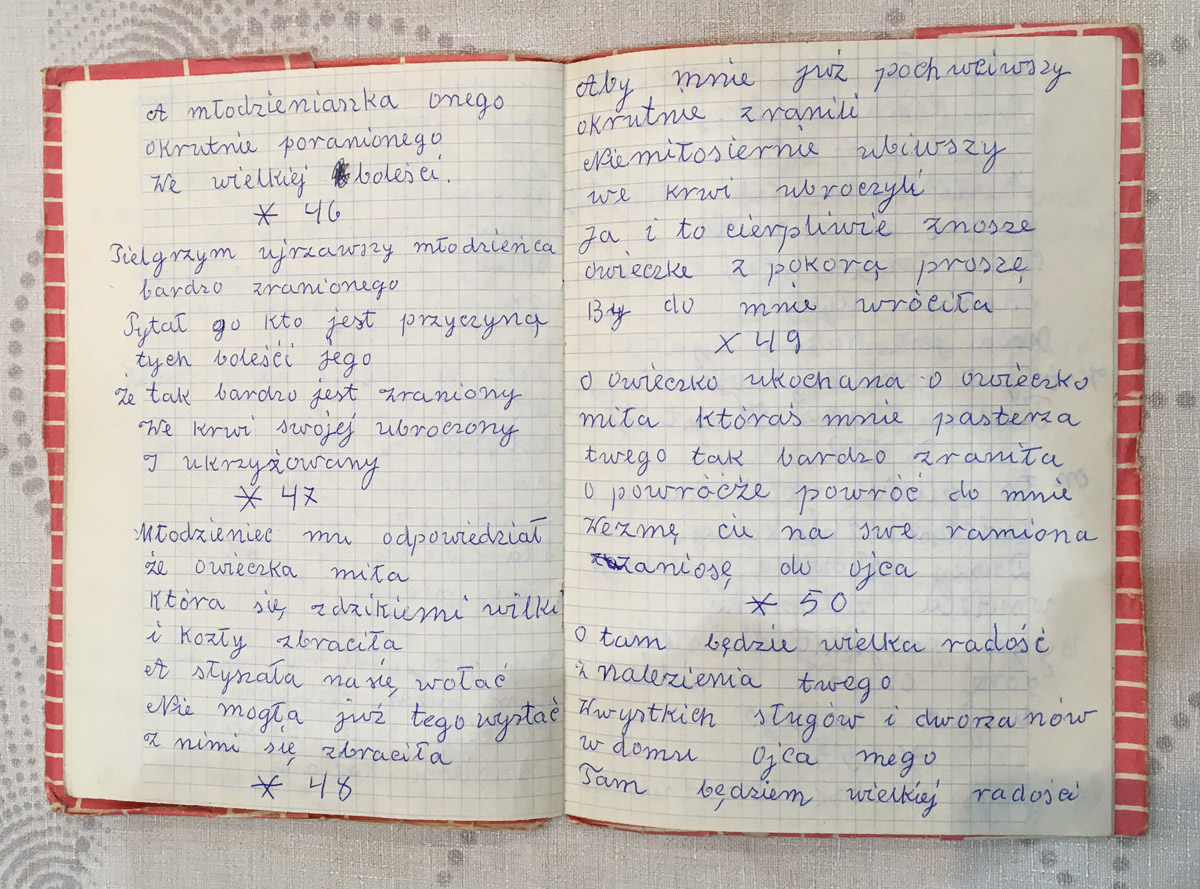 A młodzieniaszka onego
okrutnie poranionego
We wielkiej boleści.
* 46
Pielgrzym ujrzawszy młodzieńca
bardzo zranionego
Pytał go kto jest przyczyną
tych boleśći jego
Że tak bardzo jest zraniony
We krwi swojej ubroczony
I ukrzyżowany
* 47
Młodzieniec mu odpowiedział
że owieczka miła
Która się zdzikiemi wilki
i Kozły zbraciła
A słyszała na się wołać
Nie mogła już tego wystać
z nimi się zbraciła
* 48
Aby mnie już pochwciwszy
okrutnie zranili
Niemiłosiernie ubiwszy
we krwi ubroczyli
Ja i to cierpliwie znosze
owieczke z pokorą proszę
By do mnie wróciła
X 49
O owieczko ukochana o owieczko
miła któraś mnie pasterza
twego tak bardzo zraniła
O powróćże powróć do mnie
Wezmę cie na swe ramiona
zaniosę do ojca
* 50
O tam będzie wielka radość
z nalezienia twego
Wwystkich sługów i dworzanów
w domu ojca mego
Tam będziem wielkiej radości